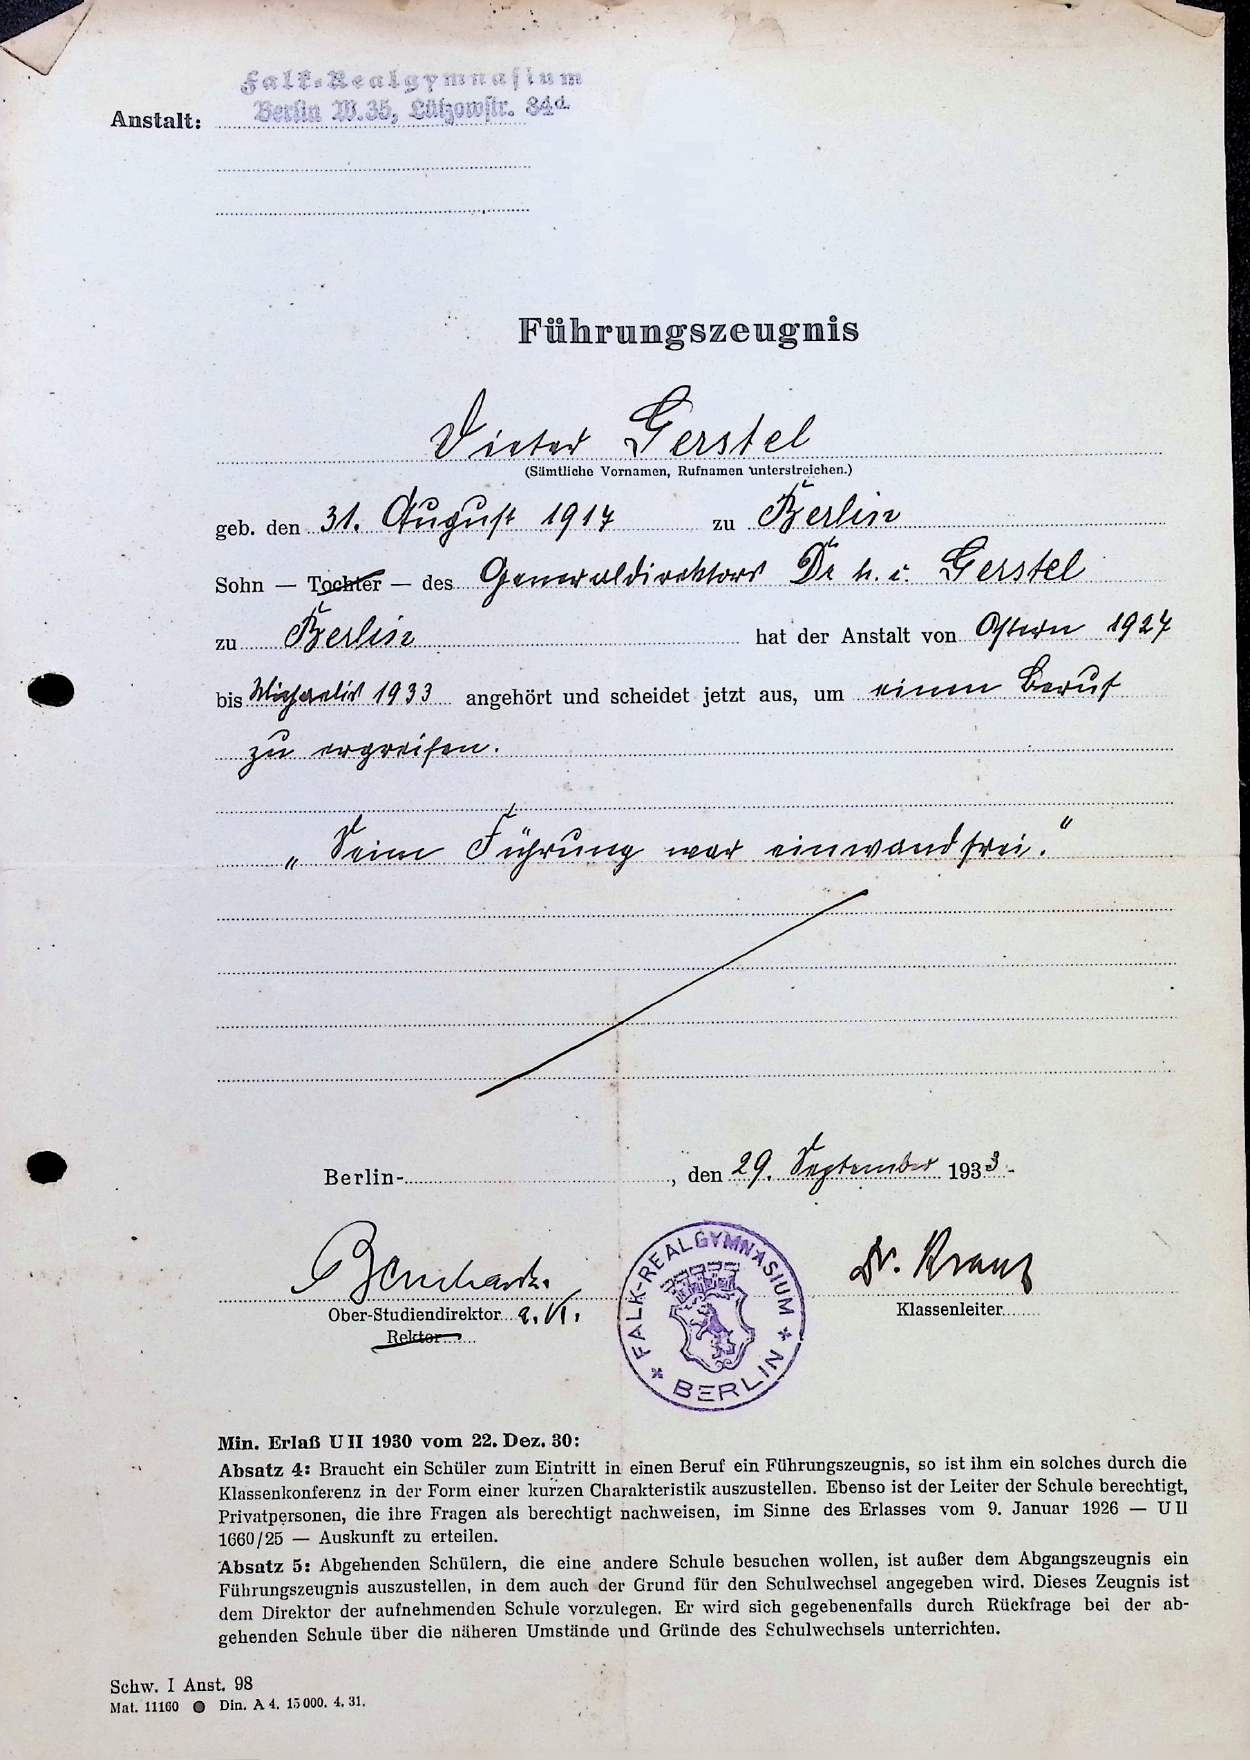 Falk-Realgymnasium
Berlin W.35, Lützowstr. 84d.
Anstalt:
Führungszeugnis
Dieter Gerstel
(Sämtliche Vornamen, Rufnamen unterstreichen.)
geb. den 31. August 1917 zu Berlin
Sohn — Tochter — des Generaldirektors Dr h. c. Gerstel
zu Berlin hat der Anstalt von Ostern 1927
bis Michaelis 1933 angehört und scheidet jetzt aus, um einen Beruf
zu ergreifen.
„Seine Führung war einwandfrei.“
Berlin- , den 29. September 1933.
Dr. Kranz
Ober-Studiendirektor Klassenleiter
Rektor
FALK-REALGYMNASIUM * BERLIN *
Min. Erlaß U II 1930 vom 22. Dez. 30:
Absatz 4: Braucht ein Schüler zum Eintritt in einen Beruf ein Führungszeugnis, so ist ihm ein solches durch die
Klassenkonferenz in der Form einer kurzen Charakteristik auszustellen. Ebenso ist der Leiter der Schule berechtigt,
Privatpersonen, die ihre Fragen als berechtigt nachweisen, im Sinne des Erlasses vom 9. Januar 1926 — U II
1660/25 — Auskunft zu erteilen.
Absatz 5: Abgehenden Schülern, die eine andere Schule besuchen wollen, ist außer dem Abgangszeugnis ein
Führungszeugnis auszustellen, in dem auch der Grund für den Schulwechsel angegeben wird. Dieses Zeugnis ist
dem Direktor der aufnehmenden Schule vorzulegen. Er wird sich gegebenenfalls durch Rückfrage bei der ab-
gehenden Schule über die näheren Umstände und Gründe des Schulwechsels unterrichten.
Schw. I Anst. 98
Mat. 11160 ● Din. A 4. 15 000. 4. 31.